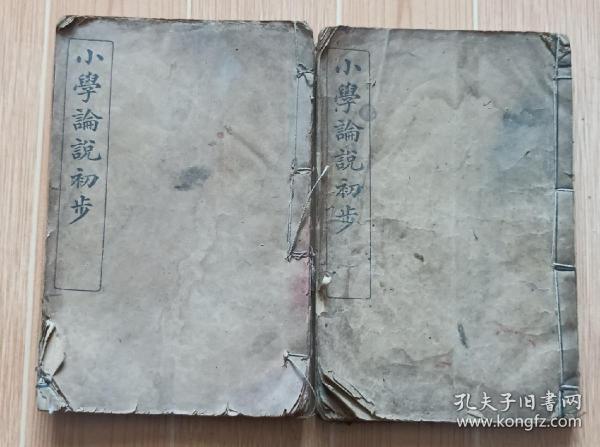 小學論說初步
小學論說初步
孔夫子旧書网
www.kongfz.com